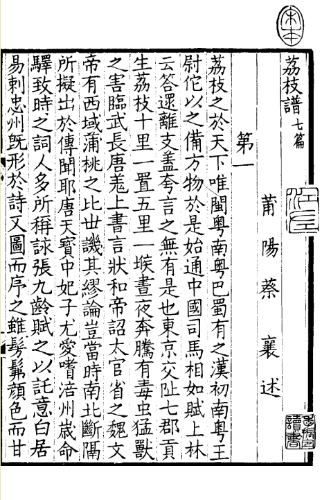 荔枝譜 七篇
莆陽蔡襄述
第一
荔枝之於天下唯閩粤南粤巴蜀有之漢初南粤王
尉佗以之備方物於是始通中國司馬相如賦上林
云答遝離支蓋夸言之無有是也東京交阯七郡貢
生荔枝十里一置五里一堠晝夜奔騰有毒虫猛獸
之害臨武長唐羌上書言狀和帝詔太官省之魏文
帝有西域蒲桃之比世譏其繆論豈當時南北斷隔
所擬出於傳聞耶唐天寳中妃子尤愛嗜涪州歳命
驛致時之詞人多所稱詠張九齡賦之以託意白居
易刺忠州旣形於詩又圖而序之雖髣髴顔色而甘